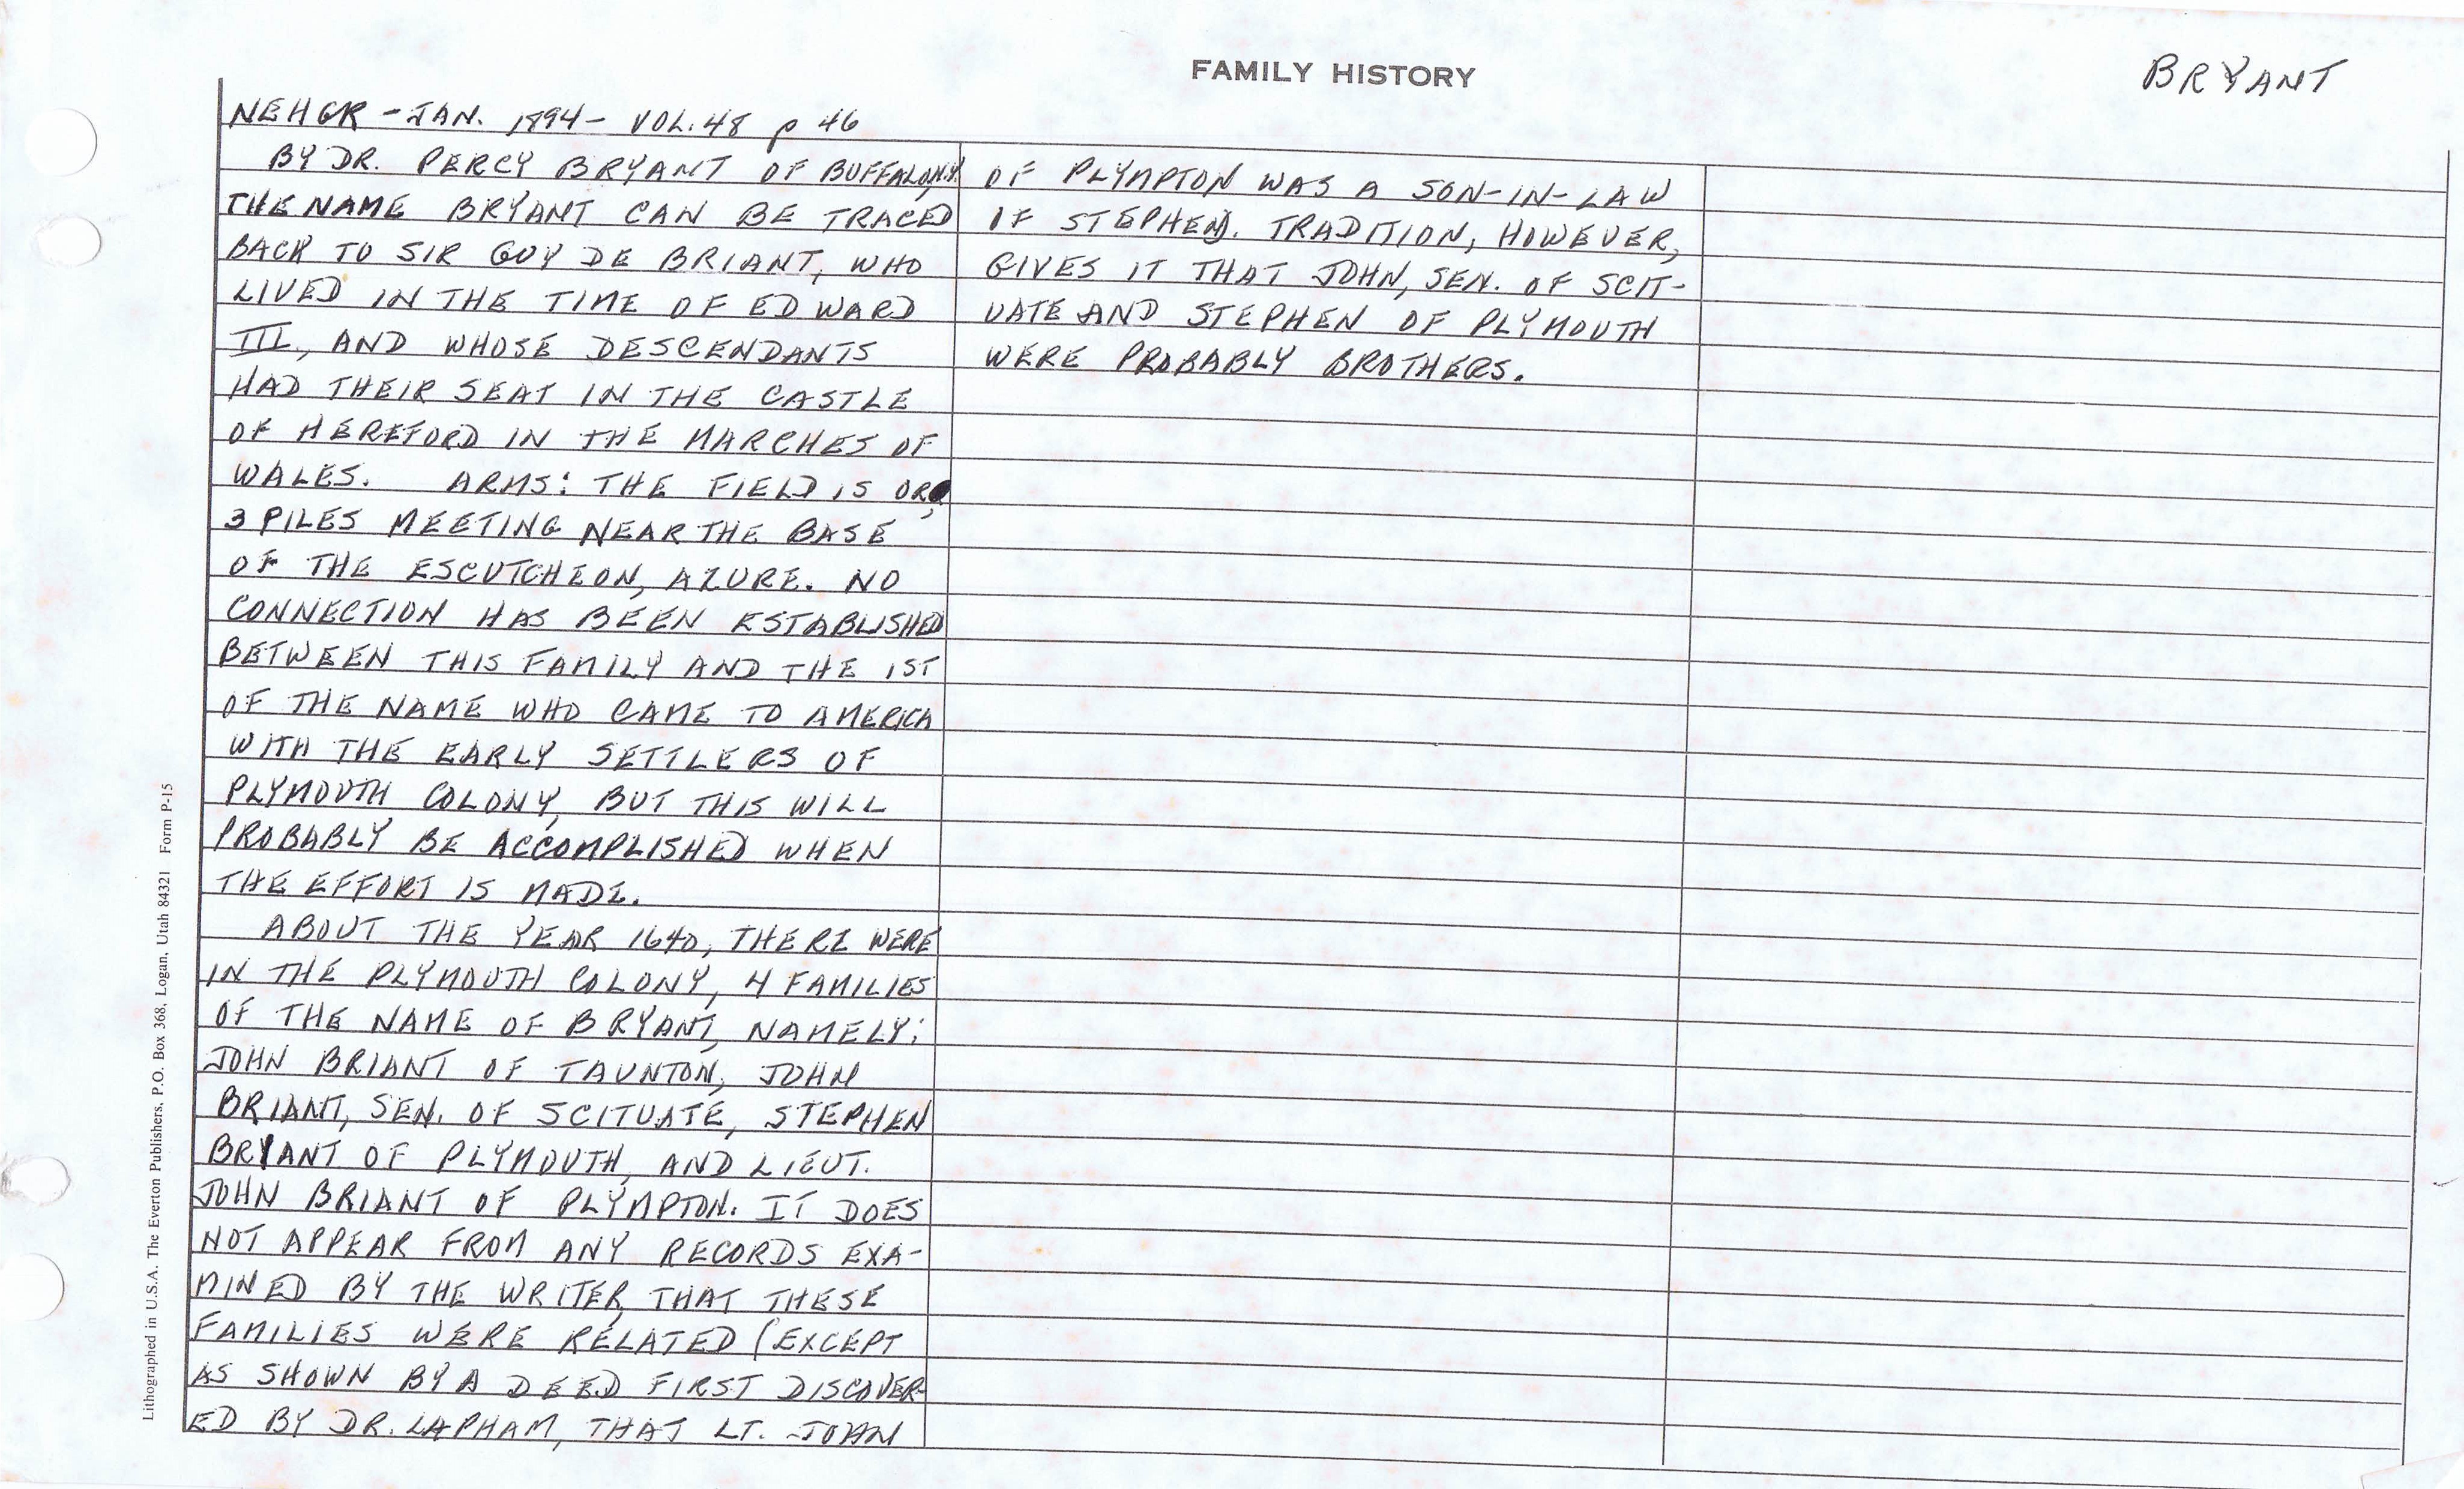 FAMILY HISTORY
BRYANT
NEHGR - JAN. 1894 - VOL. 48 p 46
BY DR. PERCY BRYANT OF BUFFALO, N.Y.
THE NAME BRYANT CAN BE TRACED
BACK TO SIR GUY DE BRIANT, WHO
LIVED IN THE TIME OF EDWARD
III, AND WHOSE DESCENDANTS
HAD THEIR SEAT IN THE CASTLE
OF HEREFORD IN THE MARCHES OF
WALES. ARMS: THE FIELD IS OR,
3 PILES MEETING NEAR THE BASE
OF THE ESCUTCHEON, AZURE. NO
CONNECTION HAS BEEN ESTABLISHED
BETWEEN THIS FAMILY AND THE 1ST
OF THE NAME WHO CAME TO AMERICA
WITH THE EARLY SETTLERS OF
PLYMOUTH COLONY, BUT THIS WILL
PROBABLY BE ACCOMPLISHED WHEN
THE EFFORT IS MADE.
ABOUT THE YEAR 1640, THERE WERE
IN THE PLYMOUTH COLONY, 4 FAMILIES
OF THE NAME OF BRYANT, NAMELY:
JOHN BRIANT OF TAUNTON, JOHN
BRIANT, SEN. OF SCITUATE, STEPHEN
BRYANT OF PLYMOUTH, AND LIEUT.
JOHN BRIANT OF PLYMPTON. IT DOES
NOT APPEAR FROM ANY RECORDS EXA-
MINED BY THE WRITER, THAT THESE
FAMILIES WERE RELATED (EXCEPT
AS SHOWN BY A DEED FIRST DISCOVER-
ED BY DR. LAPHAM, THAT LT. JOHN
OF PLYMPTON WAS A SON-IN-LAW
OF STEPHEN). TRADITION, HOWEVER,
GIVES IT THAT JOHN, SEN. OF SCIT-
UATE AND STEPHEN OF PLYMOUTH
WERE PROBABLY BROTHERS.
Lithographed in U.S.A. The Everton Publishers, P.O. Box 368, Logan, Utah 84321 Form P-15